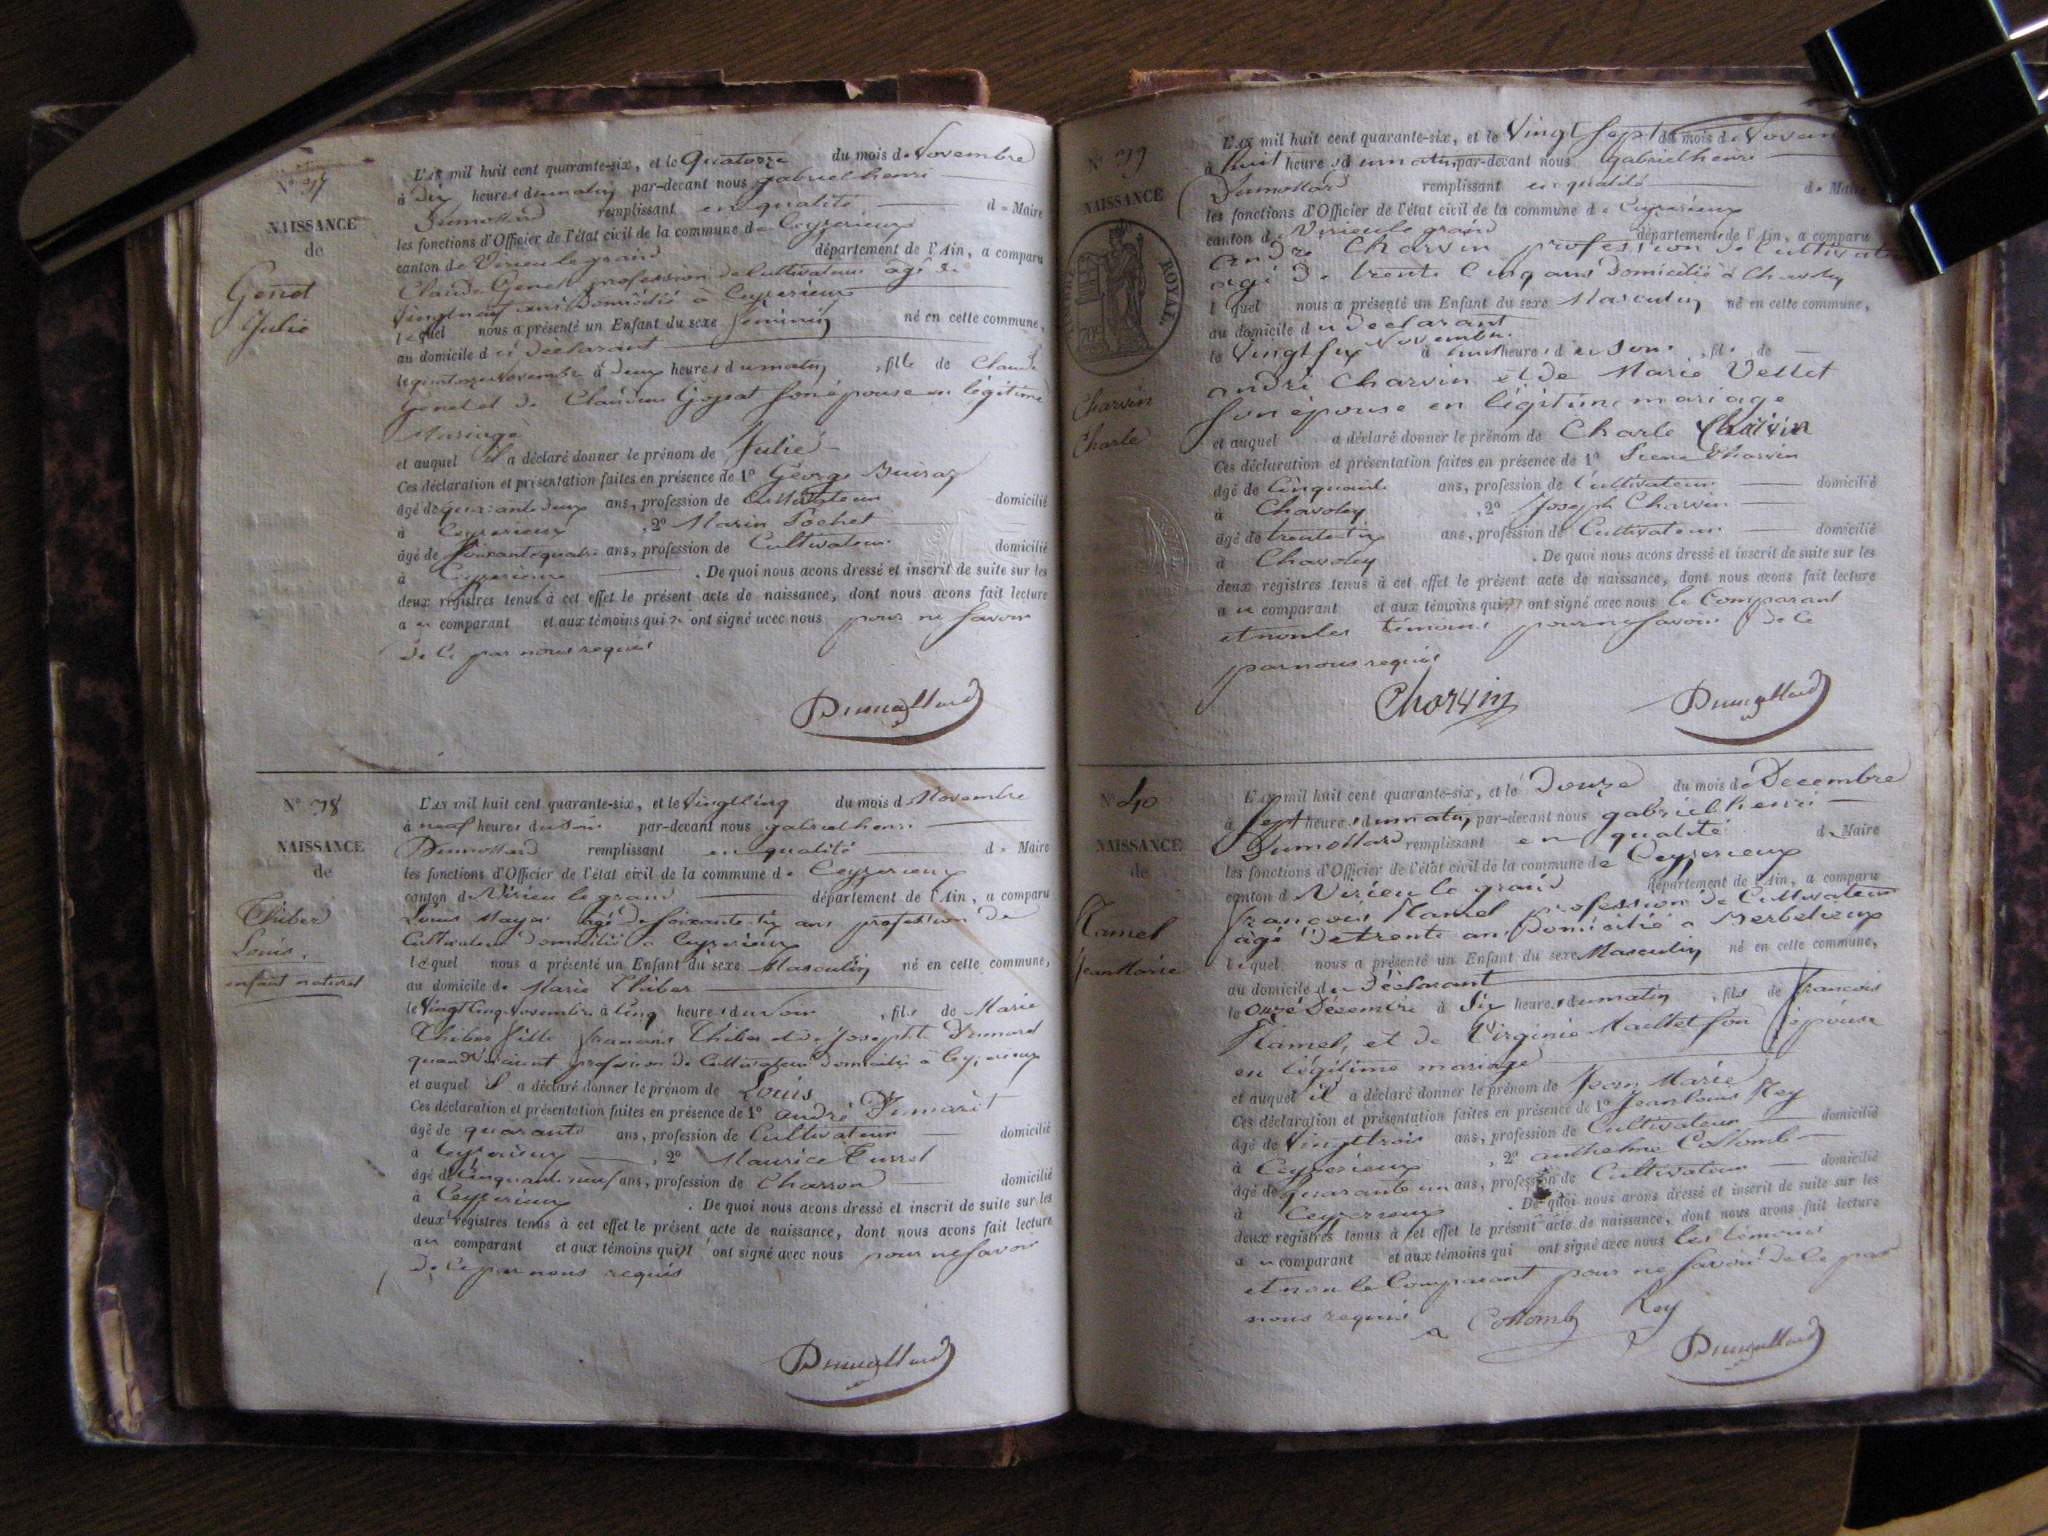 N° 37
NAISSANCE
de
Genet
Julie
L'AN mil huit cent quarante-six, et le Quatorze du mois de Novembre
à dix heures du matin par-devant nous gabriel henri
Dumollard remplissant en qualité de Maire
les fonctions d'Officier de l'état civil de la commune de Ceyzerieux
canton de Virieu le grand département de l'Ain, a comparu
Claude Genet profession de Cultivateur agé de
vingt neuf ans Domicilié à Ceyzerieux
lequel nous a présenté un Enfant du sexe feminin né en cette commune,
au domicile du déclarant
le quatorze Novembre à deux heures du matin, fille de Claude
Genet et de Claudine son épouse en légitime
Mariage
et auquel il a déclaré donner le prénom de Julie
Ces déclaration et présentation faites en présence de 1° George
âgé de quarante deux ans, profession de Cultivateur domicilié
à Ceyzerieux, 2° Marin Pochet
âgé de soixante quatre ans, profession de Cultivateur domicilié
à Ceyzerieux. De quoi nous avons dressé et inscrit de suite sur les
deux registres tenus à cet effet le présent acte de naissance, dont nous avons fait lecture
au comparant et aux témoins qui n'ont signé avec nous pour ne savoir
de ce par nous requis
Dumollard
N° 38
NAISSANCE
de
Thiber
Louis.
enfant naturel
L'AN mil huit cent quarante-six, et le vingt cinq du mois de Novembre
à neuf heures du soir par-devant nous gabriel henri
Dumollard remplissant en qualité de Maire
les fonctions d'Officier de l'état civil de la commune de Ceyzerieux
canton de Virieu le grand département de l'Ain, a comparu
Louis agé de soixante six ans profession de
Cultivateur domicilié à Ceyzerieux
lequel nous a présenté un Enfant du sexe Masculin né en cette commune,
au domicile de Marie Thiber
le vingt cinq Novembre à cinq heures du soir, fils de Marie
Thiber fille françois Thiber et de Josephte
quand vivaient profession de Cultivateur domiciliés à Ceyzerieux
et auquel il a déclaré donner le prénom de Louis
Ces déclaration et présentation faites en présence de 1° andré
âgé de quarante ans, profession de Cultivateur domicilié
à Ceyzerieux, 2° Maurice
âgé de cinquante neuf ans, profession de Charron domicilié
à Ceyzerieux. De quoi nous avons dressé et inscrit de suite sur les
deux registres tenus à cet effet le présent acte de naissance, dont nous avons fait lecture
au comparant et aux témoins qui n'ont signé avec nous pour ne savoir
de ce par nous requis
Dumollard
N° 39
NAISSANCE
TIMBRE ROYAL
Charvin
Charle
L'AN mil huit cent quarante-six, et le Vingt sept du mois de Novem
à huit heures du matin, par-devant nous gabriel henri
Dumollard remplissant en qualité de Maire
les fonctions d'Officier de l'état civil de la commune de Ceyzerieux
canton de Virieu le grand département de l'Ain, a comparu
andré Charvin profession de Cultivateur
agé de trente cinq ans Domicilié à Chavoley
lequel nous a présenté un Enfant du sexe Masculin né en cette commune,
au domicile du déclarant
le vingt six Novembre à huit heures du soir, fils de
andré Charvin et de Marie Vettet
son épouse en légitime mariage
et auquel a déclaré donner le prénom de Charle Charvin
Ces déclaration et présentation faites en présence de 1° Pierre Charvin
âgé de Cinquante ans, profession de Cultivateur domicilié
à Chavoley, 2° Joseph Charvin
âgé de trente six ans, profession de Cultivateur domicilié
à Chavoley. De quoi nous avons dressé et inscrit de suite sur les
deux registres tenus à cet effet le présent acte de naissance, dont nous avons fait lecture
au comparant et aux témoins qui ont signé avec nous le Comparant
et non les témoins pour ne savoir de ce
par nous requis
Charvin Dumollard
N° 40
NAISSANCE
de
Hamel
Jean Marie
L'AN mil huit cent quarante-six, et le Douze du mois de Decembre
à sept heures du matin, par-devant nous gabriel henri
Dumollard remplissant en qualité de Maire
les fonctions d'Officier de l'état civil de la commune de Ceyzerieux
canton de Virieu le grand département de l'Ain, a comparu
françois Hamel profession de Cultivateur
agé de trente ans Domicilié à
lequel nous a présenté un Enfant du sexe Masculin né en cette commune,
au domicile du Déclarant
le onze Décembre à Six heures du matin, fils de françois
Hamel, et de Virginie Maillet son épouse
en légitime mariage
et auquel il a déclaré donner le prénom de Jean Marie
Ces déclaration et présentation faites en présence de 1° Jean Louis Rey
âgé de vingt trois ans, profession de Cultivateur domicilié
à Ceyzerieux, 2° anthelme Collomb
âgé de quarante un ans, profession de Cultivateur domicilié
à Ceyzerieux. De quoi nous avons dressé et inscrit de suite sur les
deux registres tenus à cet effet le présent acte de naissance, dont nous avons fait lecture
au comparant et aux témoins qui ont signé avec nous les témoins
et non le Comparant pour ne savoir de ce par
nous requis
a Collomb Rey
Dumollard